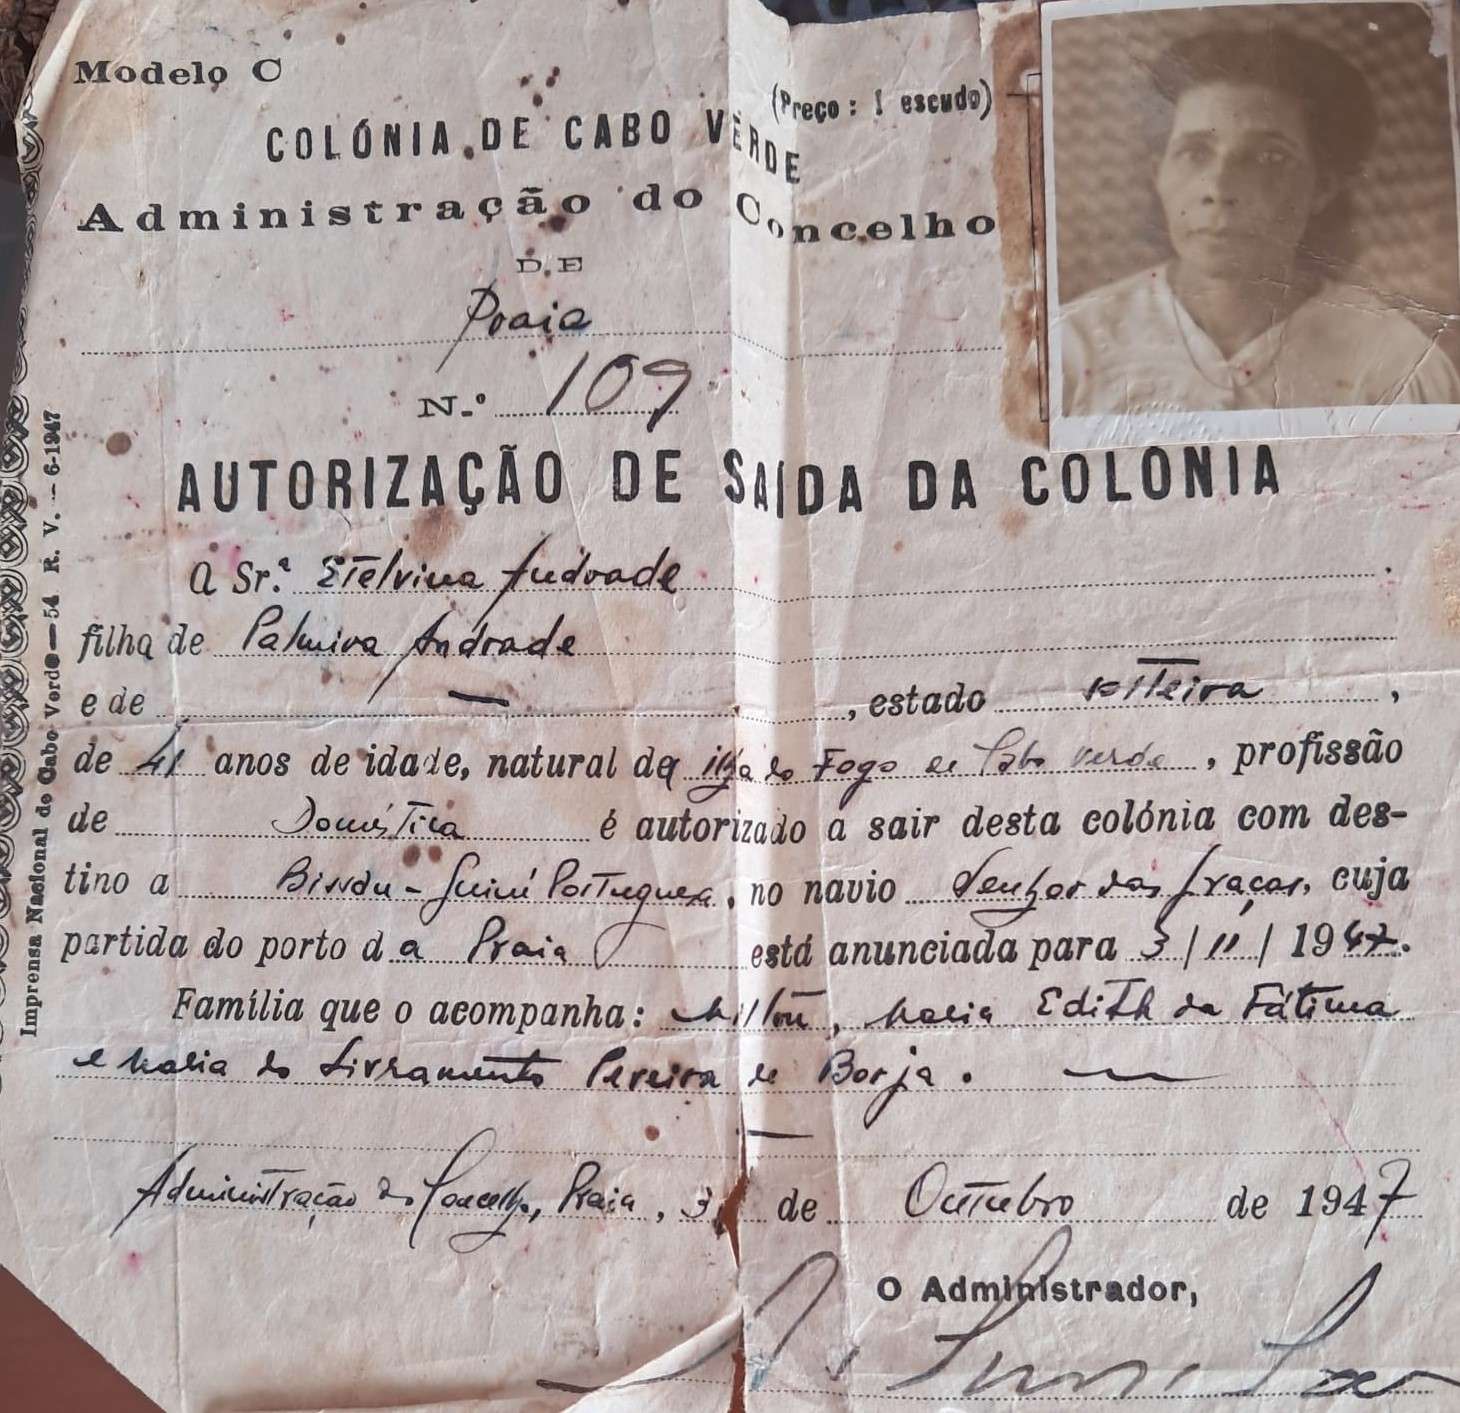 Modelo C
(Preço: 1 escudo)
COLÓNIA DE CABO VERDE
Administração do Concelho
DE
Praia
N.º 109
AUTORIZAÇÃO DE SAÍDA DA COLÓNIA
A Sr.ª Etelvina Andrade
filha de Palmira Andrade
e de —, estado solteira,
de 41 anos de idade, natural da ilha do Fogo de Cabo Verde, profissão
de Doméstica é autorizado a sair desta colónia com des-
tino a Bissau - Guiné Portuguesa, no navio Senhor das Graças, cuja
partida do porto da Praia está anunciada para 3/11/1947.
Família que o acompanha: Milton, Maria Edith da Fátima
e Maria do Livramento Pereira de Borja. —
—
Administração do Concelho, Praia, de Outubro de 1947
O Administrador,
Imprensa Nacional de Cabo Verde — 54 R. V. — 6-1947